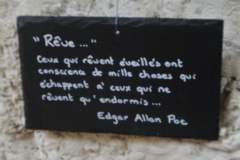 "Rêve..."
Ceux qui rêvent éveillés ont
conscience de mille choses qui
échappent à ceux qui ne
rêvent qu'endormis...
Edgar Allan Poe